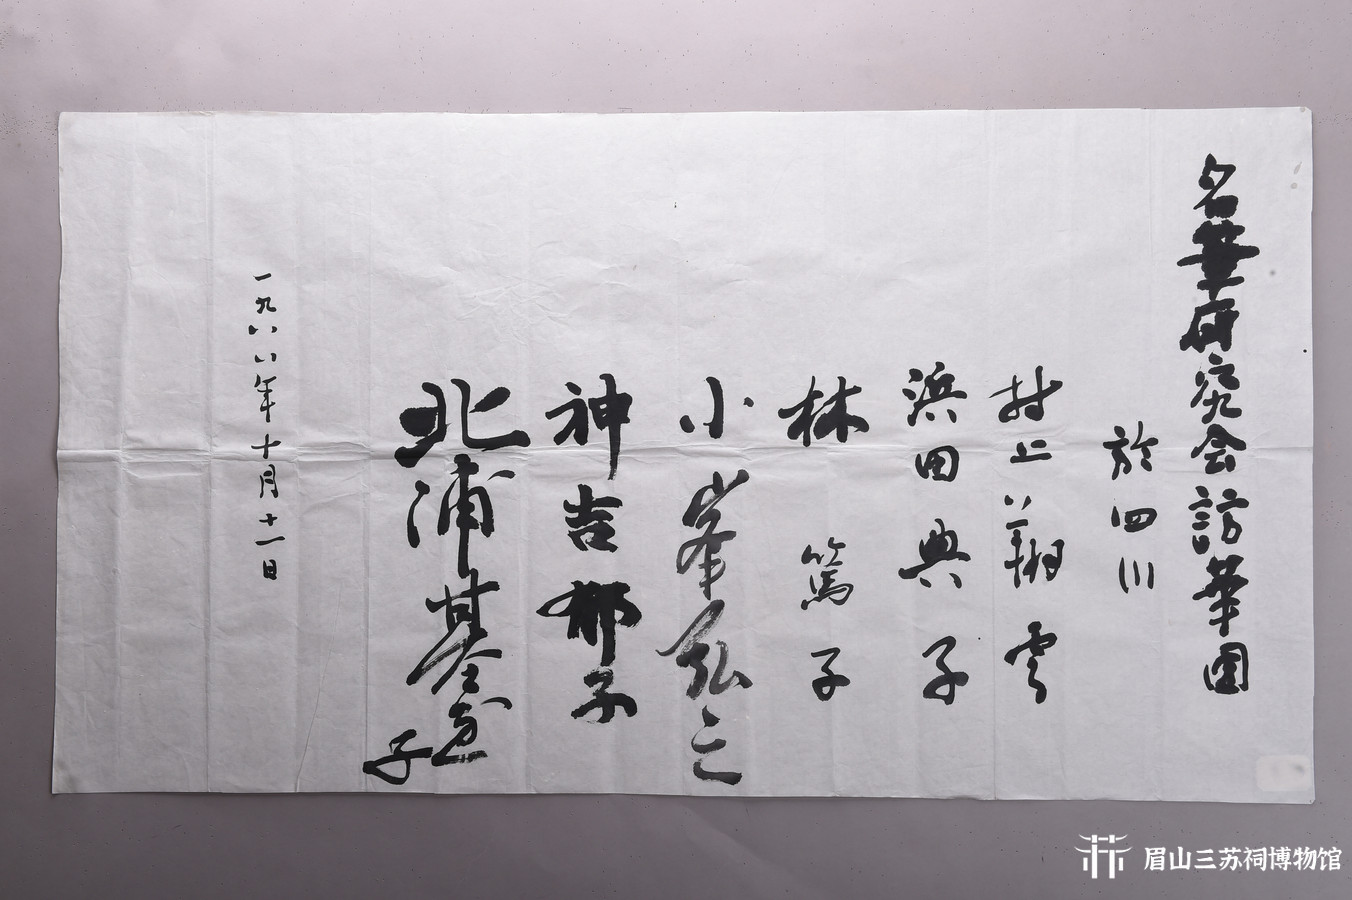 名筆研究会訪華團
於四川
村上翔雲
浜田典子
林篤子
小峯弘之
神吉郁子
北浦基壺子
一九八八年十月十一日
眉山三苏祠博物馆